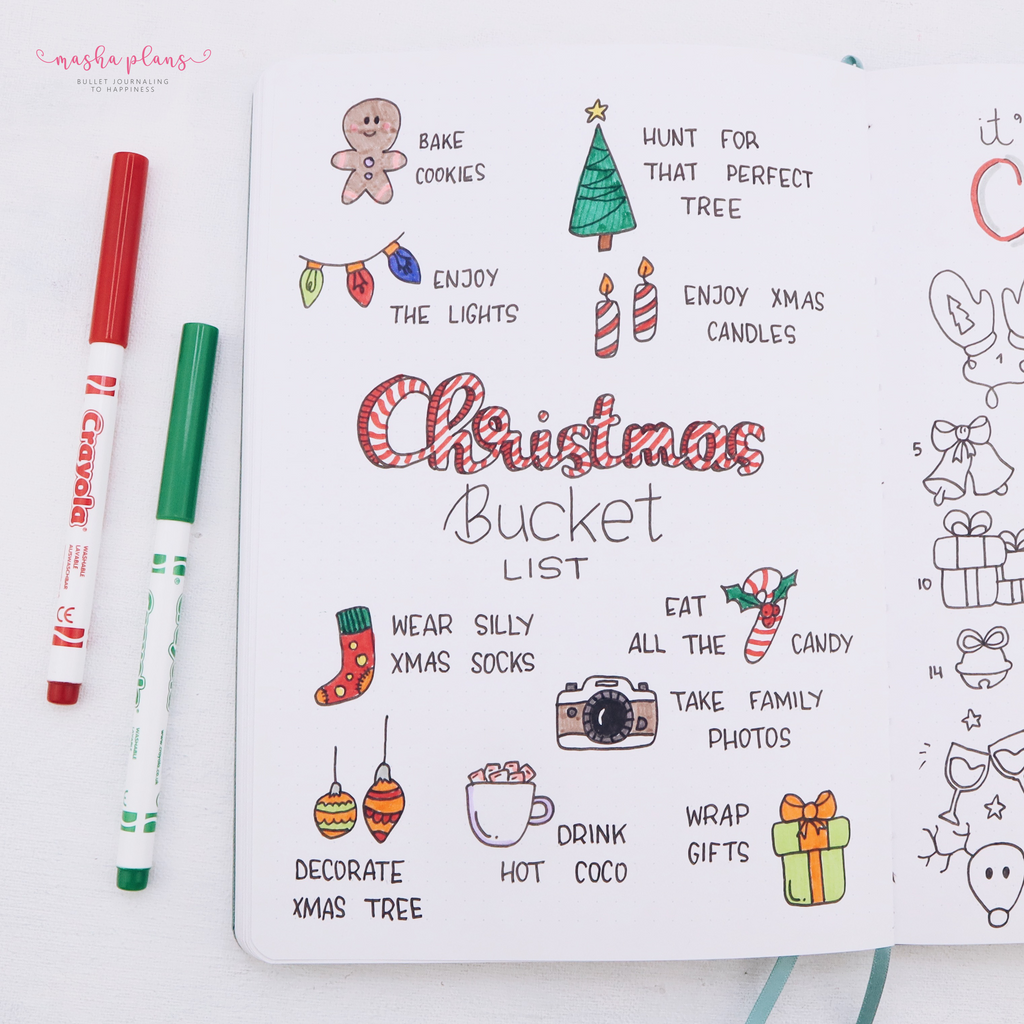 masha plans
BULLET JOURNALING
TO HAPPINESS
BAKE
COOKIES
HUNT FOR
THAT PERFECT
TREE
ENJOY
THE LIGHTS
ENJOY XMAS
CANDLES
Christmas
Bucket
LIST
WEAR SILLY
XMAS SOCKS
EAT
ALL THE CANDY
TAKE FAMILY
PHOTOS
DECORATE
XMAS TREE
DRINK
HOT COCO
WRAP
GIFTS
it's
C
1
5
10
14
Crayola
WASHABLE
LAVABLE
AUSWASCHBAR
CE